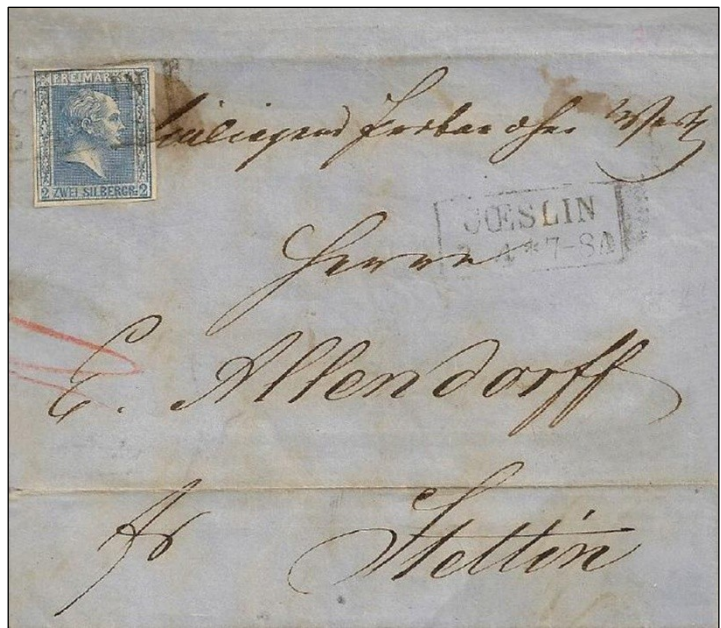 FREIMARK
2 ZWEI SILBERGR. 2
CŒSLIN
4 * 7-8A
Herrn
E. Allendorff
fr Stettin